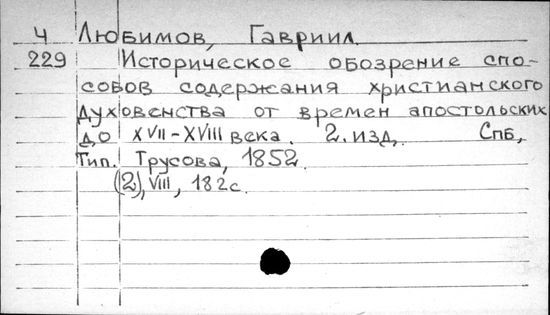 Ч Любимов, Гавриил
229 Историческое обозрение спо-
собов содержания христианского
духовенства от времен апостольских
до XVII-XVIII века. 2. изд. Спб,
Тип. Трусова, 1852.
(2), VIII, 182 с.